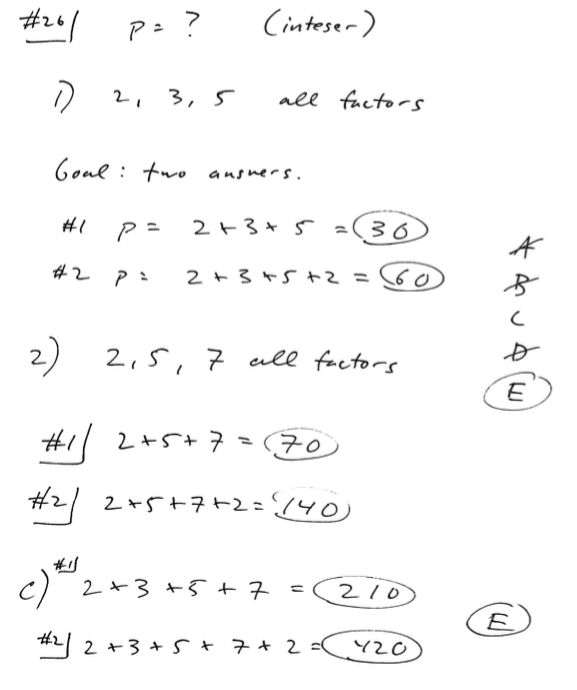 #26/ p = ? (integer)
1) 2, 3, 5 all factors
Goal: two answers.
#1 p = 2 + 3 + 5 = 30
#2 p = 2 + 3 + 5 + 2 = 60
A
B
C
D
E
2) 2, 5, 7 all factors
#1/ 2 + 5 + 7 = 70
#2/ 2 + 5 + 7 + 2 = 140
C) #1/ 2 + 3 + 5 + 7 = 210
E
#2/ 2 + 3 + 5 + 7 + 2 = 420